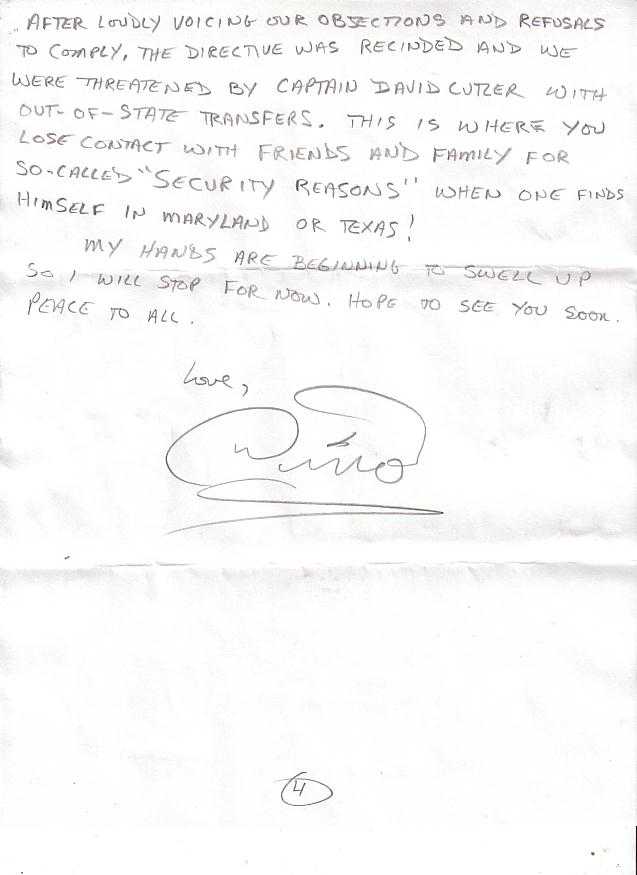 AFTER LOUDLY VOICING OUR OBJECTIONS AND REFUSALS
TO COMPLY, THE DIRECTIVE WAS RECINDED AND WE
WERE THREATENED BY CAPTAIN DAVID CUTLER WITH
OUT-OF-STATE TRANSFERS. THIS IS WHERE YOU
LOSE CONTACT WITH FRIENDS AND FAMILY FOR
SO-CALLED "SECURITY REASONS" WHEN ONE FINDS
HIMSELF IN MARYLAND OR TEXAS!
MY HANDS ARE BEGINNING TO SWELL UP
SO I WILL STOP FOR NOW. HOPE TO SEE YOU SOON.
PEACE TO ALL.
Love,
4